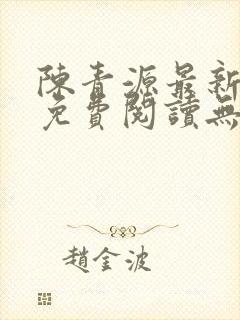 陳青源最新
免費閱讀無
趙金波